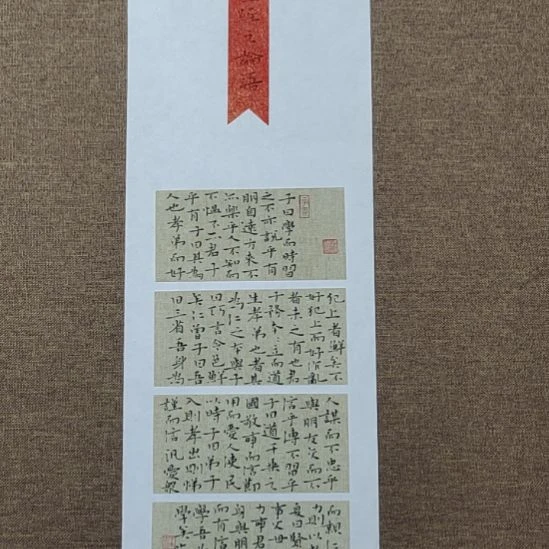 經之論語
子曰學而時習
之不亦說乎有
朋自遠方來不
亦樂乎人不知而
不慍不亦君子
乎有子曰其為
人也孝弟而好
犯上者鮮矣不
好犯上而好作亂
者未之有也君
子務本本立而道
生孝弟也者其
為仁之本與子
曰巧言令色鮮
矣仁曾子曰吾
日三省吾身為
人謀而不忠乎
與朋友交而不
信乎傳不習乎
子曰道千乘之
國敬事而信節
用而愛人使民
以時子曰弟子
入則孝出則悌
謹而信汎愛眾
而親仁
力則以
夏曰賢
事父母
力事君
身與朋
而有信
學吾
學矣